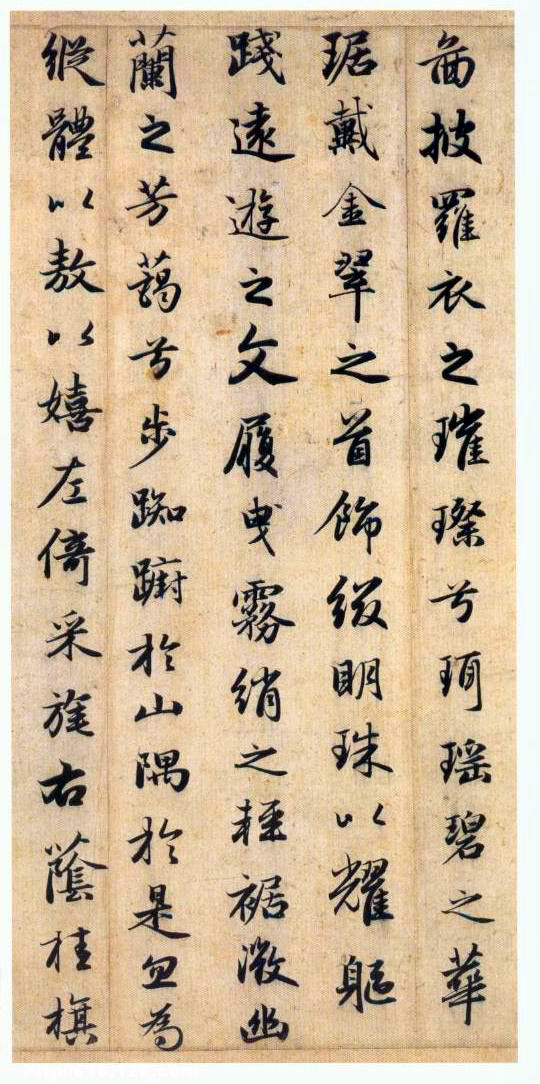 啚披羅衣之璀璨兮珥瑤碧之華
琚戴金翠之首飾綴明珠以耀軀
踐遠遊之文履曳霧綃之輕裾微幽
蘭之芳藹兮步踟躕於山隅於是忽為
縱體以敖以嬉左倚采旄右蔭桂旗